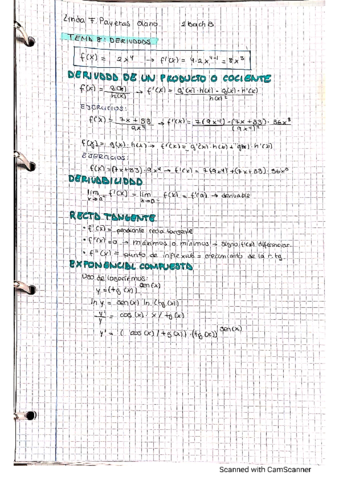 Linda F. Payeras
2 Bach B
TEMA 8: DERIVADAS
f(x) = 2x⁴ → f'(x) = 4·2x⁴⁻¹ = 8x³
DERIVADA DE UN PRODUCTO O COCIENTE
f(x) = g(x)/h(x) → f'(x) = g'(x)·h(x) - g(x)·h'(x) / h(x)²
EJERCICIOS:
f(x) = 7x+83 / 9x⁴ → f'(x) = 7(9x⁴)-(7x+83)·36x³ / (9x⁴)²
f(x) = g(x)·h(x) → f'(x) = g'(x)·h(x) + g(x)·h'(x)
EJERCICIOS:
f(x) = (7x+83)·9x⁴ → f'(x) = 7(9x⁴)+(7x+83)·36x³
DERIVABILIDAD
lim f'(x) = lim f'(x) = f'(a) → derivable
RECTA TANGENTE
• f'(x) = pendiente recta tangente
• f'(x) = 0 → máximos o mínimos → signo f'(x) diferenciar
• f''(x) = punto de inflexión = crecimiento de la r. tg.
EXPONENCIAL COMPUESTA
Uso de logaritmos
y = (tg(x))^sen(x)
ln y = sen(x) ln (tg(x))
y'/y = cos(x) · x / tg(x)
y' = (cos(x) / tg(x)) · (tg(x))^sen(x)
Scanned with CamScanner